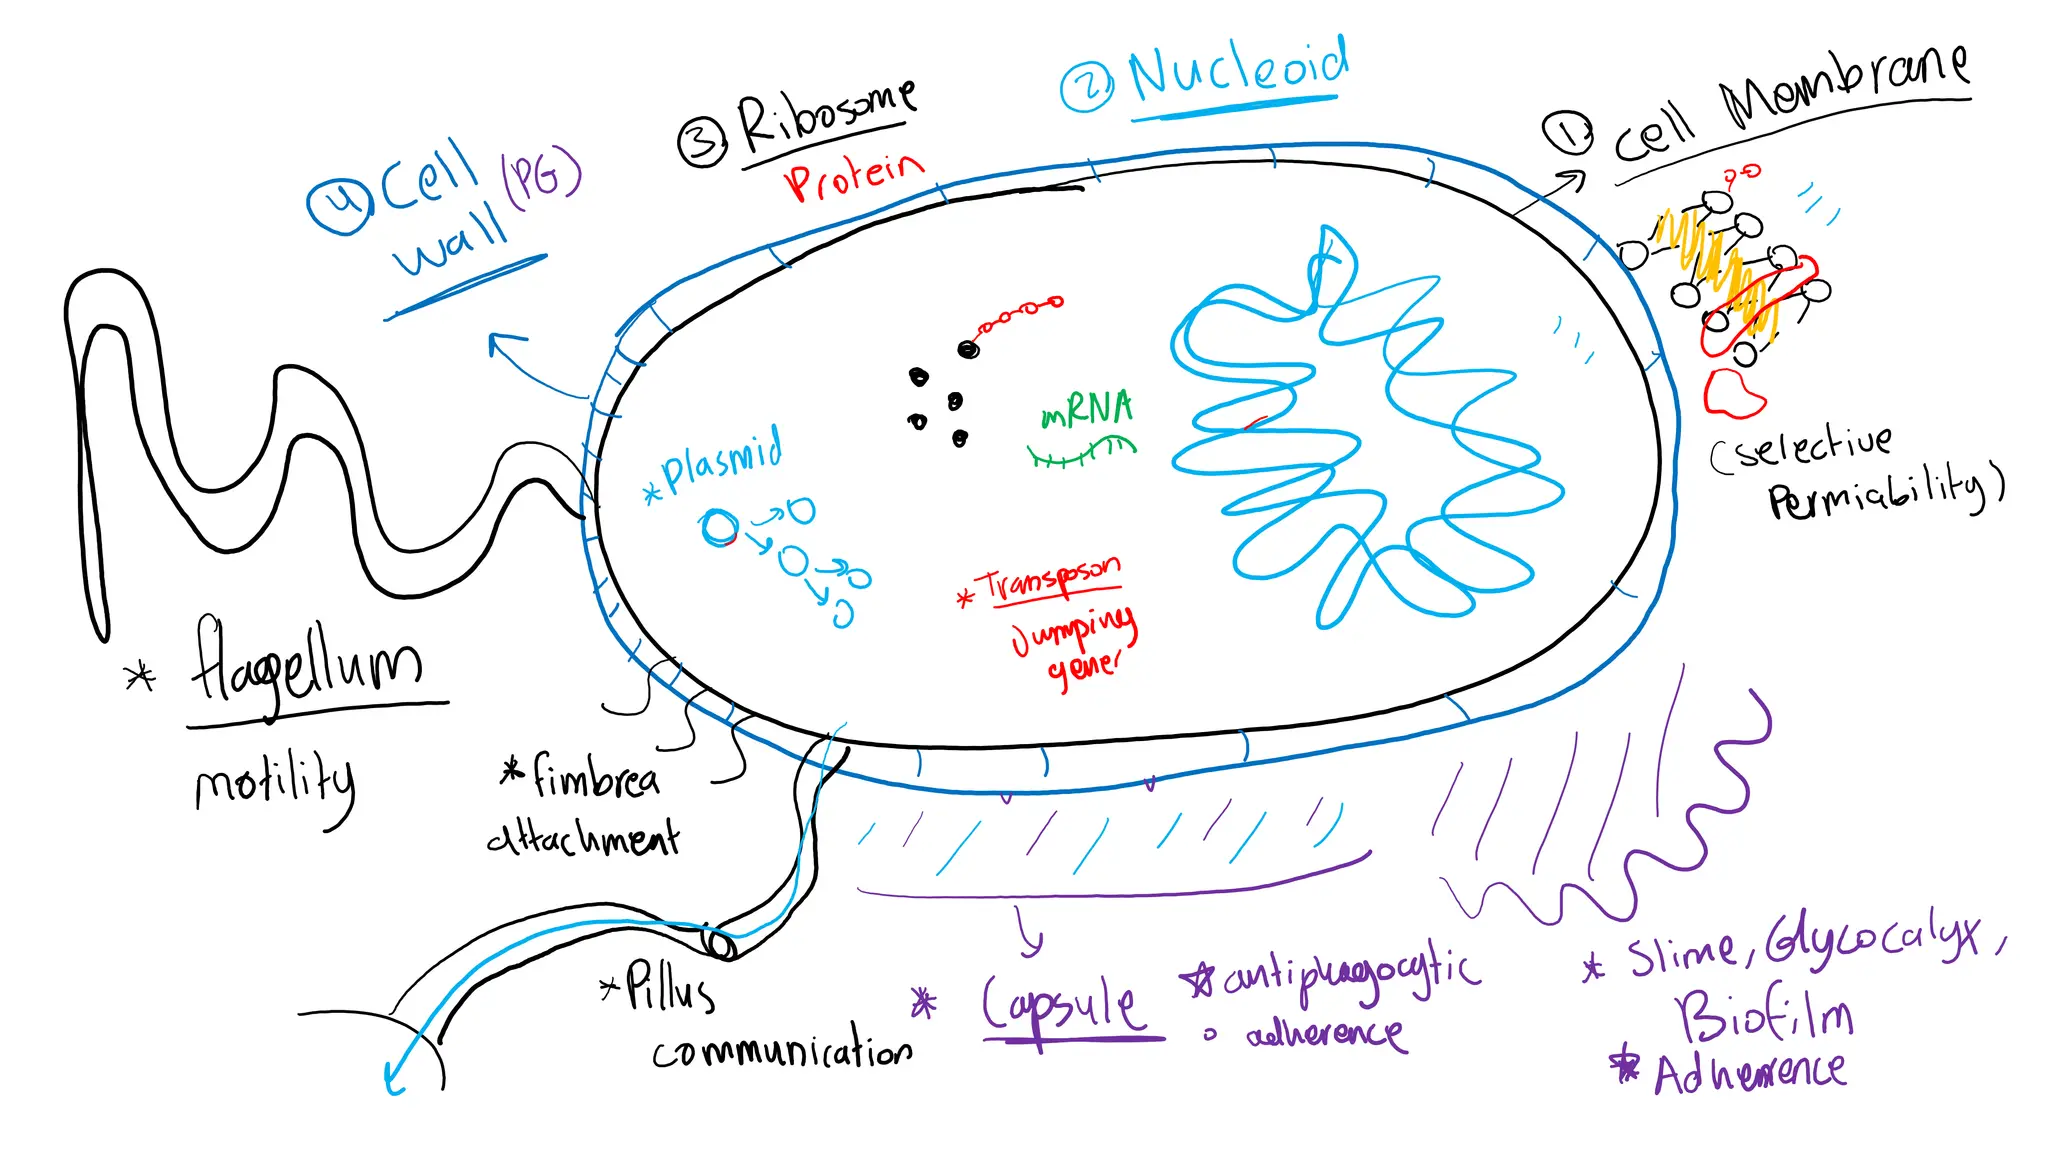 ① Cell Membrane
(selective
Permiability)
② Nucleoid
③ Ribosome
Protein
④ Cell
wall (PG)
mRNA
* Plasmid
* Transposon
Jumping
gener
* flagellum
motility
* fimbrea
attachment
* Pillus
communication
* Capsule
☆ antiphagocytic
○ adherence
* Slime, Glycocalyx,
Biofilm
* Adherence